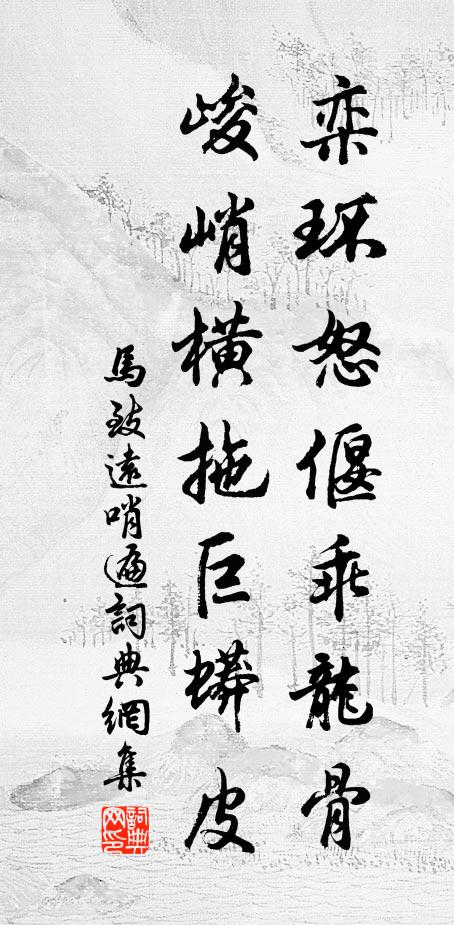 栾环怒偃乖龍骨
峻峭橫拖巨蟒皮
馬致遠哨遍詞典網集
詞典網印